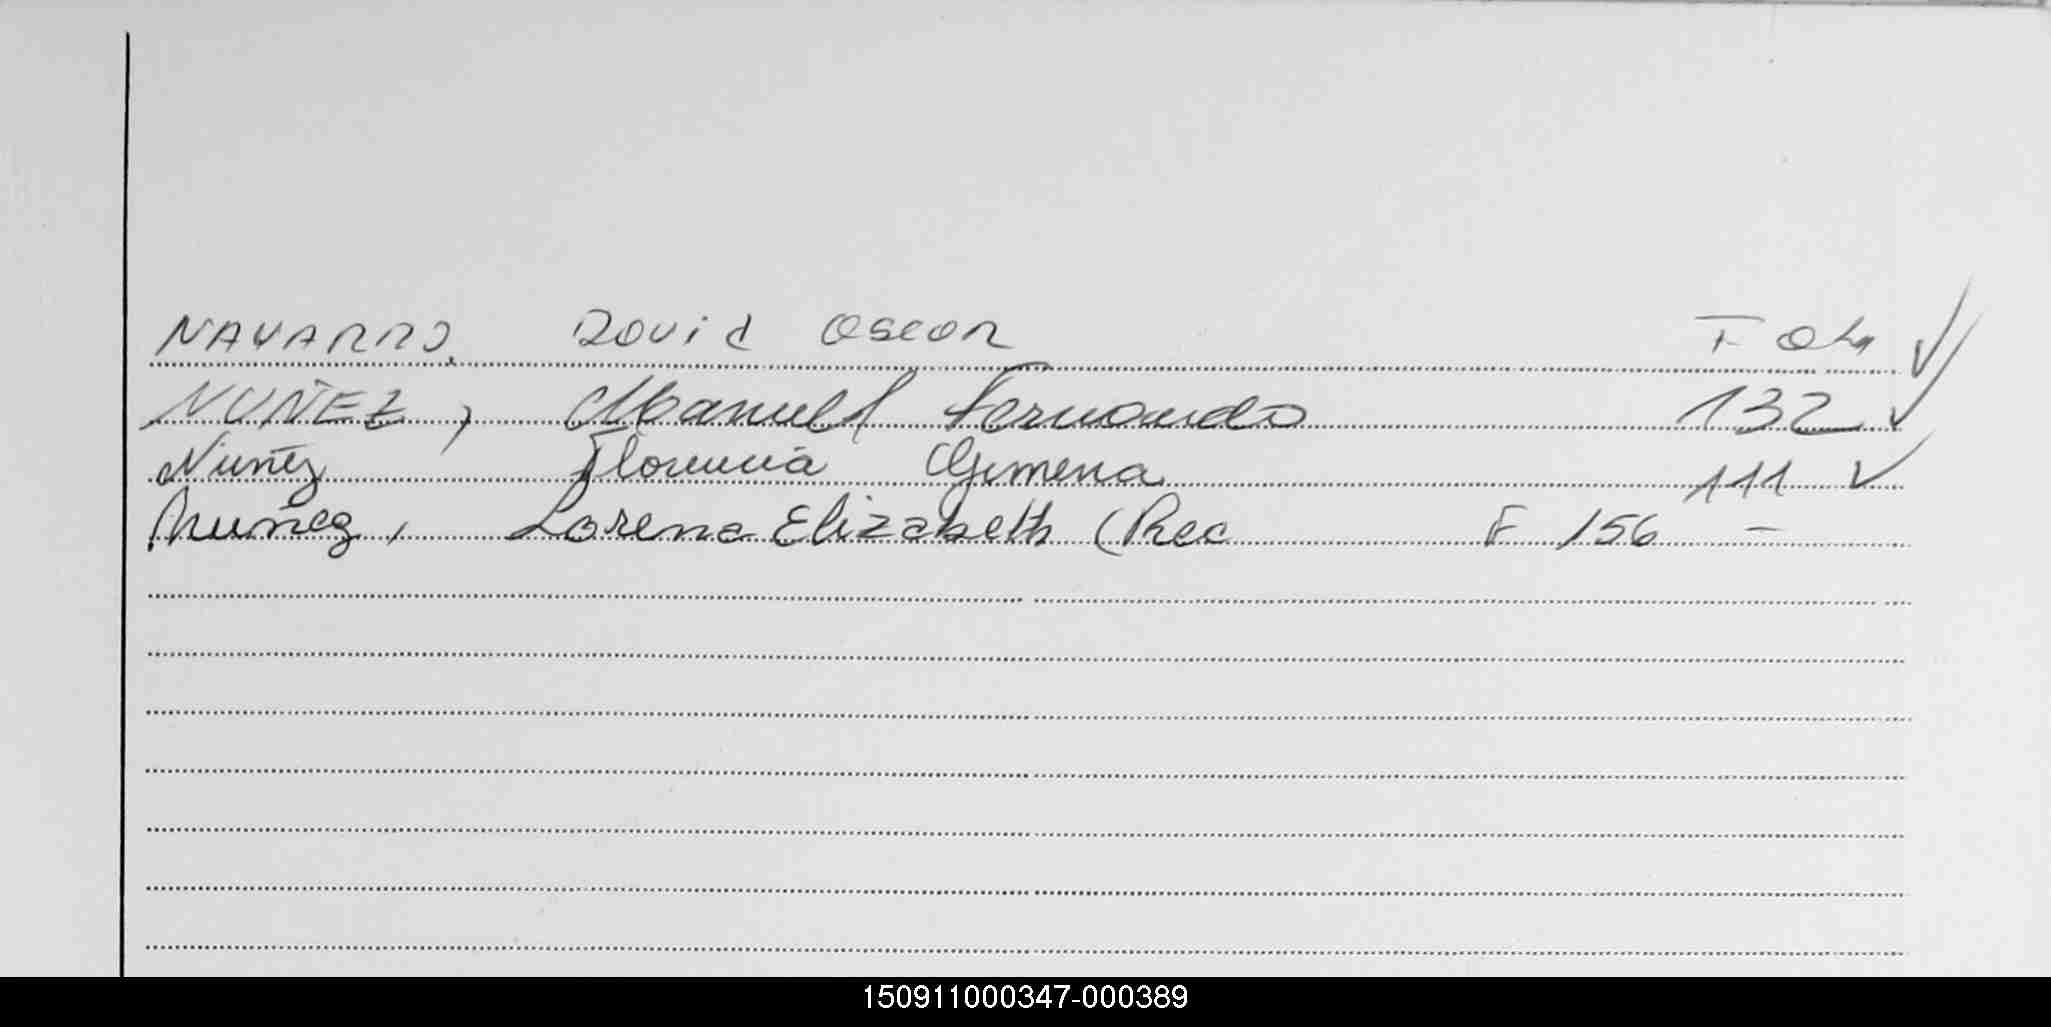 NAVARRO, David Oscar F 04 ✓
NUÑEZ, Manuel Fernando 132 ✓
Nuñez Florencia Gimena 111 ✓
Nuñez, Lorena Elizabeth (Rec F 156 -
150911000347-000389